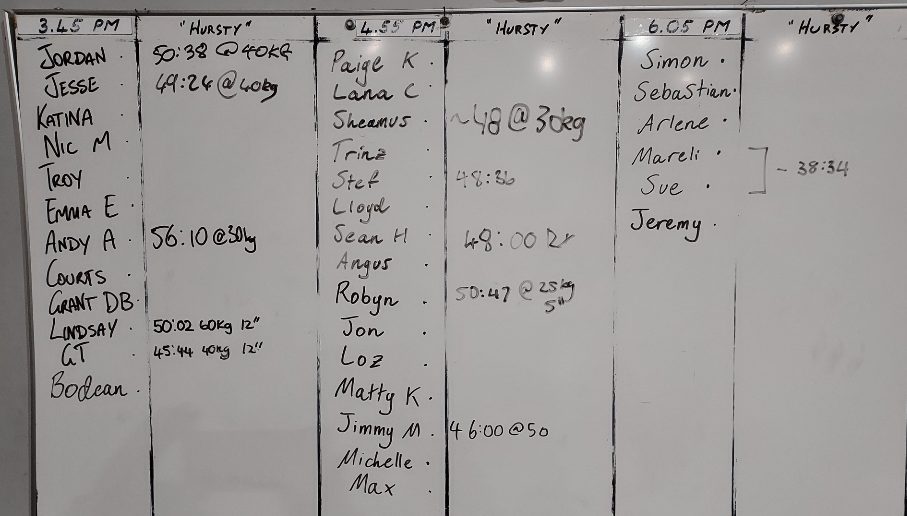 3.45 PM "HURSTY"
JORDAN · 50:38 @ 40KG
JESSE · 49:24 @ 40kg
KATINA ·
NIC M ·
TROY ·
EMMA E ·
ANDY A · 56:10 @ 30kg
COURTS ·
GRANT DB ·
LINDSAY · 50:02 60kg 12"
GT · 45:44 40kg 12"
Bodean ·
4.55 PM "HURSTY"
Paige K ·
Lana C ·
Sheamus · ~48 @ 30kg
Trinz ·
Stef · 48:36
Lloyd ·
Sean H · 48:00 Rx
Angus ·
Robyn · 50:47 @ 25kg
5"
Jon ·
Loz ·
Matty K ·
Jimmy M · 46:00 @ 50
Michelle ·
Max ·
6.05 PM "HURSTY"
Simon ·
Sebastian ·
Arlene ·
Mareli ·
Sue · - 38:34
Jeremy ·